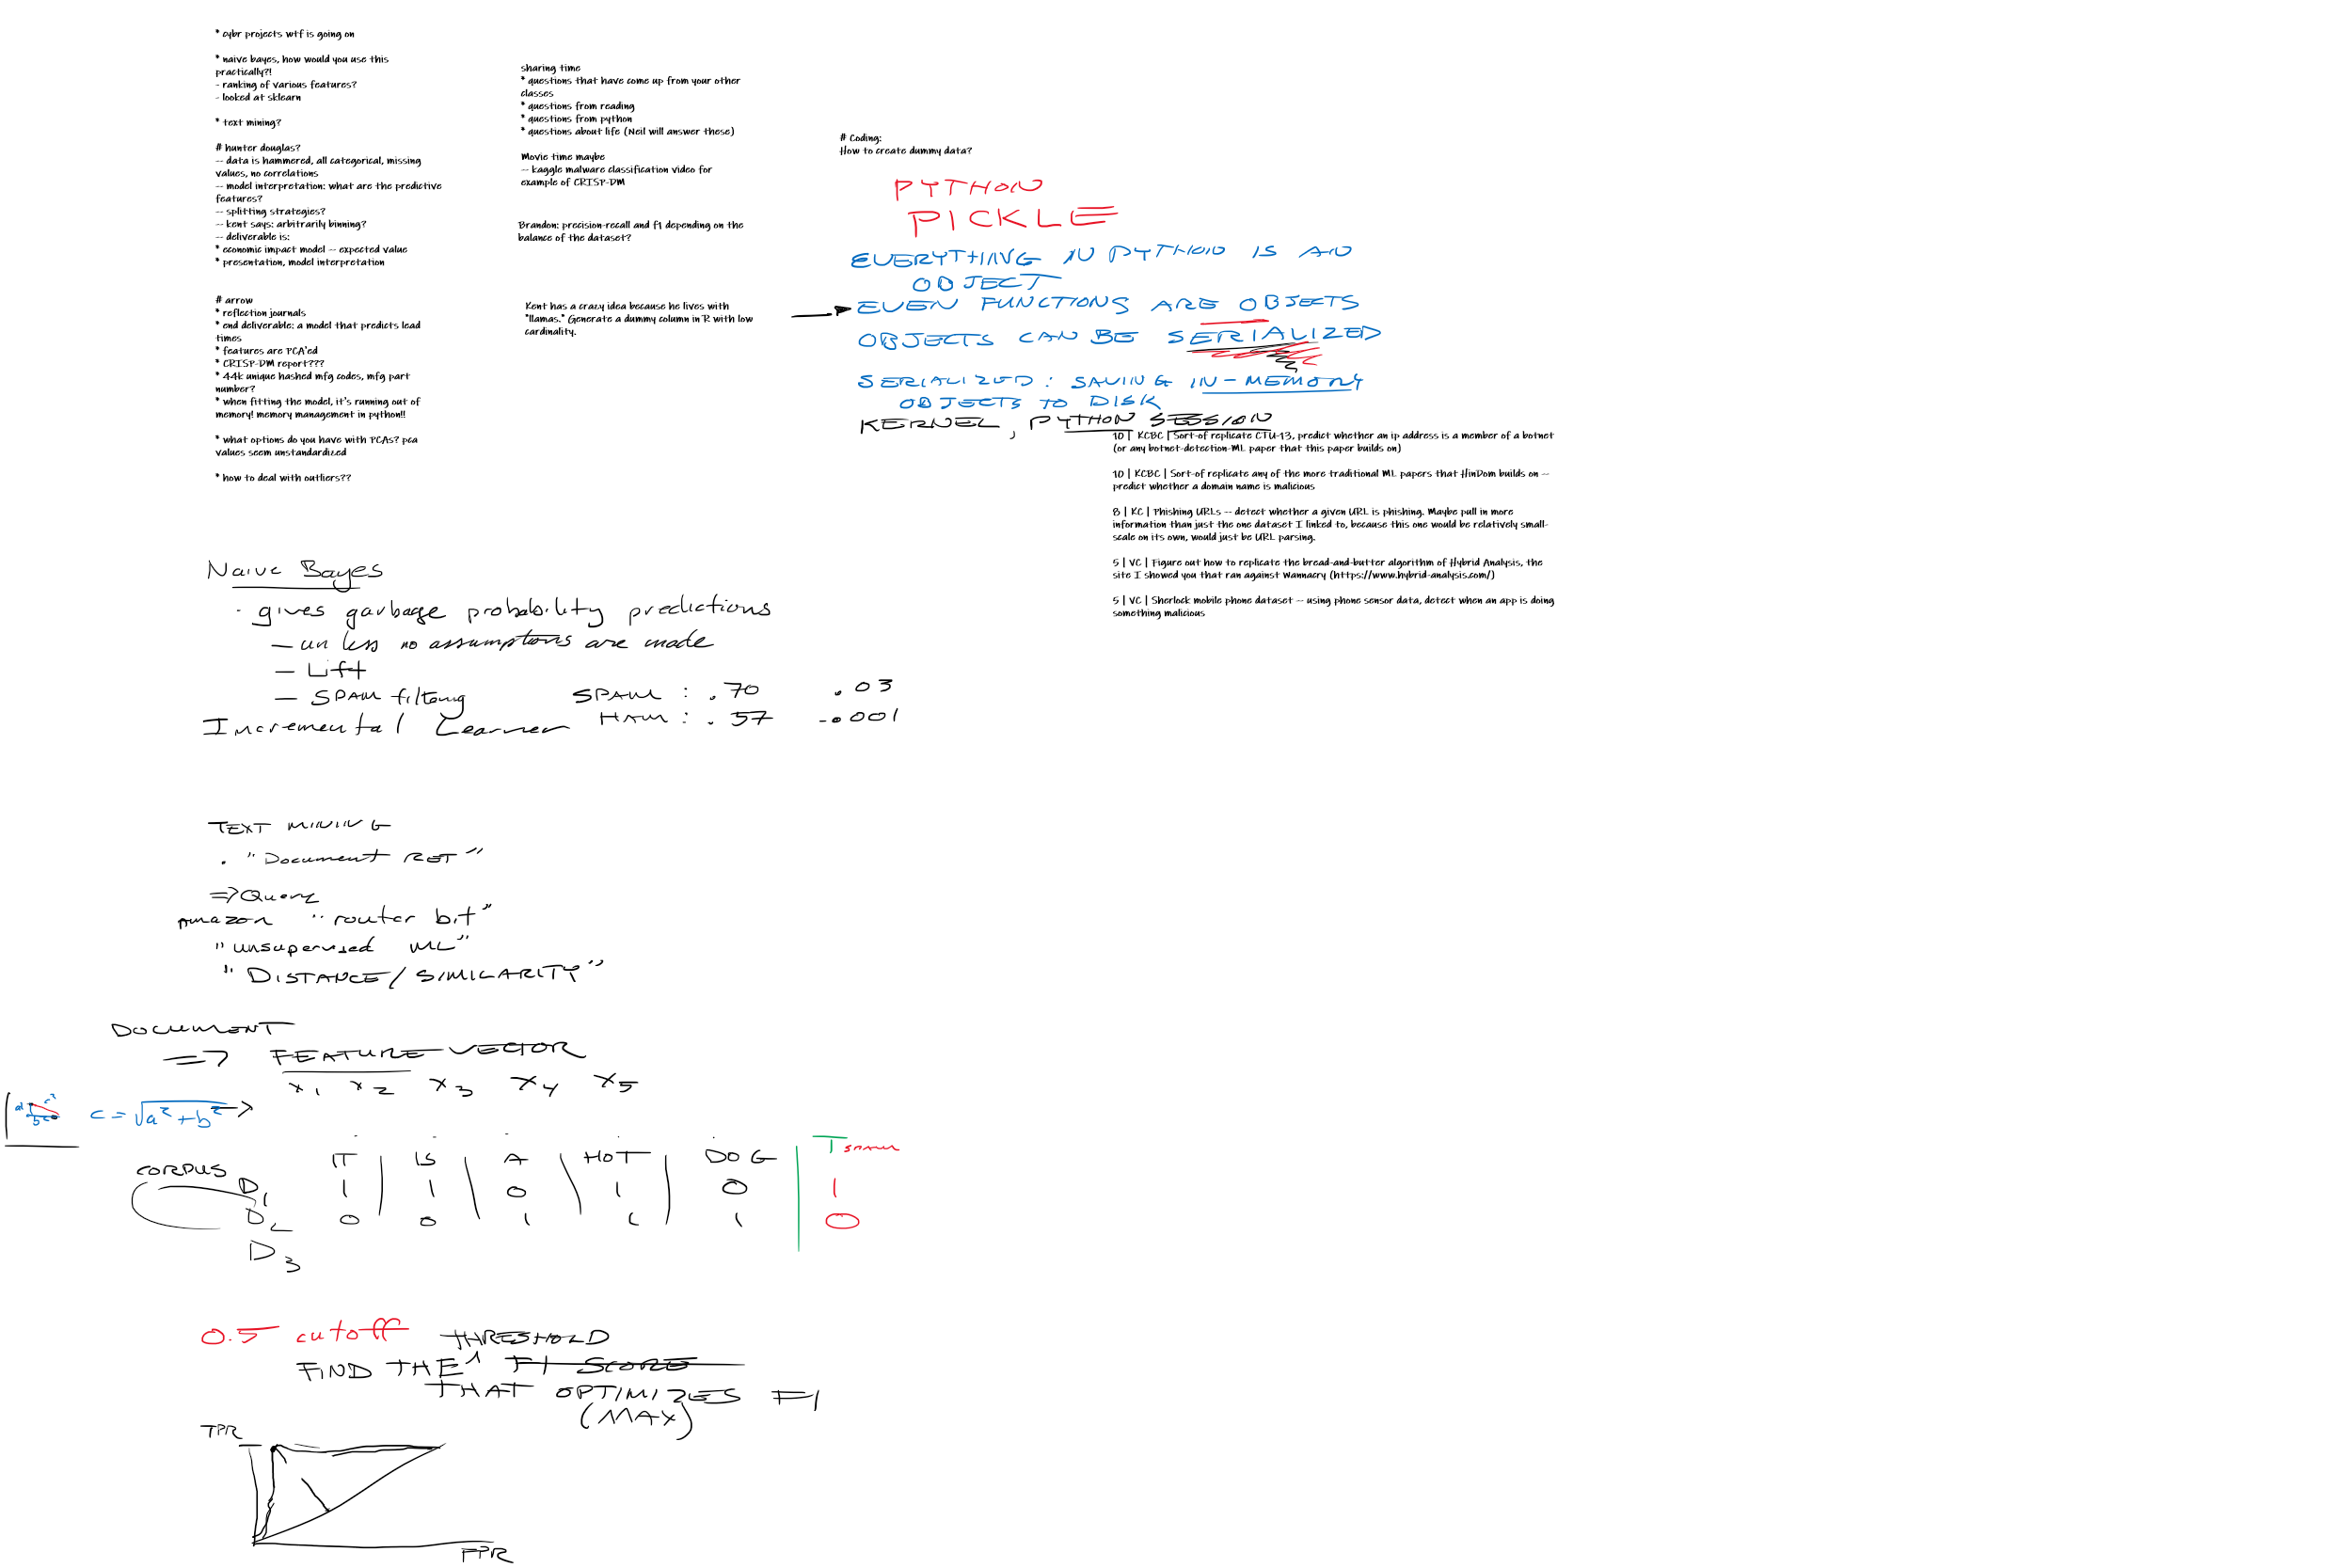 * cybr projects wtf is going on
* naive bayes, how would you use this
practically?!
- ranking of various features?
- looked at sklearn
* text mining?
# hunter douglas?
-- data is hammered, all categorical, missing
values, no correlations
-- model interpretation: what are the predictive
features?
-- splitting strategies?
-- kent says: arbitrarily binning?
-- deliverable is:
* economic impact model -- expected value
* presentation, model interpretation
# arrow
* reflection journals
* end deliverable: a model that predicts lead
times
* features are PCA'ed
* CRISP-DM report???
* 44k unique hashed mfg codes, mfg part
number?
* when fitting the model, it's running out of
memory! memory management in python!!
* what options do you have with PCAs? pca
values seem unstandardized
* how to deal with outliers??
sharing time
* questions that have come up from your other
classes
* questions from reading
* questions from python
* questions about life (Neil will answer these)
Movie time maybe
-- kaggle malware classification video for
example of CRISP-DM
Brandon: precision-recall and f1 depending on the
balance of the dataset?
Kent has a crazy idea because he lives with
"llamas." Generate a dummy column in R with low
cardinality.
# Coding:
How to create dummy data?
PYTHON
PICKLE
EVERYTHING IN PYTHON IS AN
OBJECT
EVEN FUNCTIONS ARE OBJECTS
OBJECTS CAN BE SERIALIZED
SERIALIZED: SAVING IN-MEMORY
OBJECTS TO DISK
KERNEL, PYTHON SESSION
10 | KCBC | Sort-of replicate CTU-13, predict whether an ip address is a member of a botnet
(or any botnet-detection-ML paper that this paper builds on)
10 | KCBC | Sort-of replicate any of the more traditional ML papers that HinDom builds on --
predict whether a domain name is malicious
8 | KC | Phishing URLs -- detect whether a given URL is phishing. Maybe pull in more
information than just the one dataset I linked to, because this one would be relatively small-
scale on its own, would just be URL parsing.
5 | VC | Figure out how to replicate the bread-and-butter algorithm of Hybrid Analysis, the
site I showed you that ran against Wannacry (https://www.hybrid-analysis.com/)
5 | VC | Sherlock mobile phone dataset -- using phone sensor data, detect when an app is doing
something malicious
Naive Bayes
· gives garbage probability predictions
— unless no assumptions are made
— Lift
— SPAM filtering SPAM : .70 .03
HAM : .57 .001
Incremental Learner
TEXT MINING
. "Document RET"
=> Query
Amazon "router bit"
"unsupervised ML"
"DISTANCE/SIMILARITY"
DOCUMENT
=> FEATURE VECTOR
x1 x2 x3 x4 x5
a b c
c = √a² + b²
IT | IS | A | HOT | DOG | T SPAM
CORPUS
D1 1 1 0 1 0 1
D2 0 0 1 1 1 0
D3
0.5 cutoff THRESHOLD
FIND THE F1 SCORE
THAT OPTIMIZES F1
(MAX)
TPR
FPR